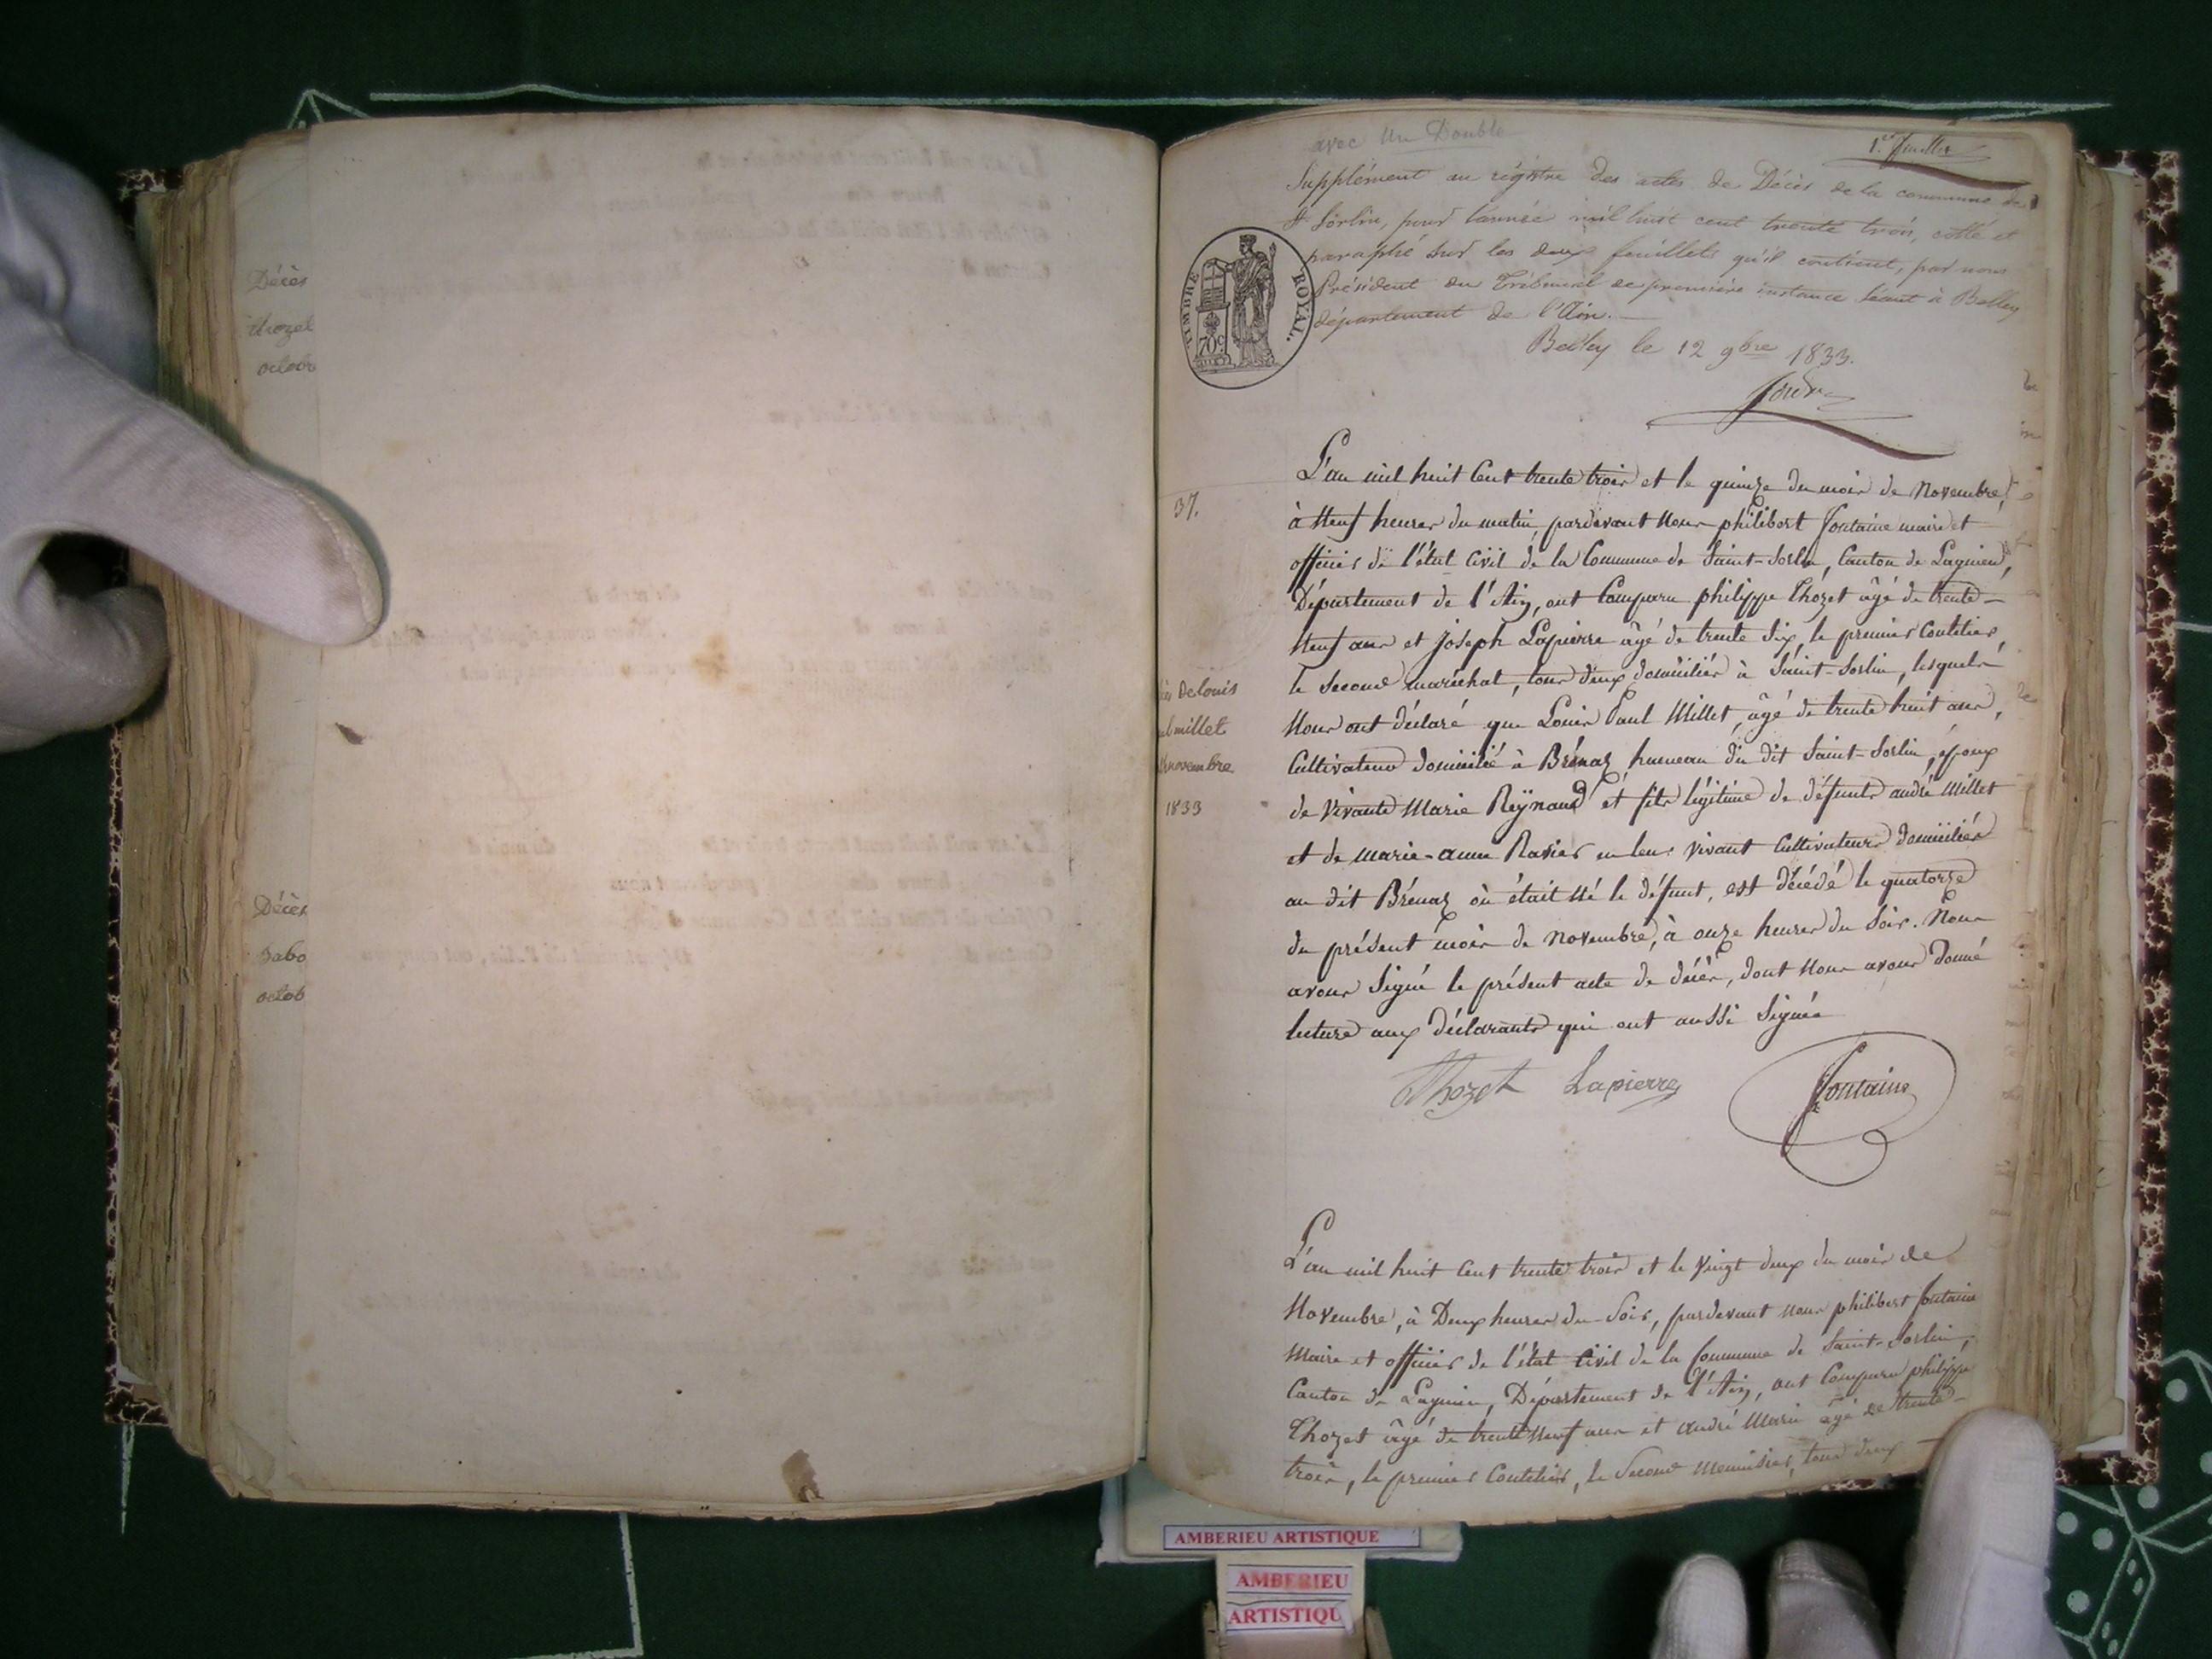 Décès
thozet
octobr
Décès
Babo
octob
avec un Double
1.er feuillet
Supplément au régistre des actes de Décès de la commune de
St Sorlin, pour l'année mil huit cent trente trois, cotté et
paraphé sur les deux feuillets qu'il contient, par nous
Président du Tribunal de première instance séant à Belley
département de l'Ain.
Belley le 12 9bre 1833.
TIMBRE ROYAL.
70 c.
37.
L'an mil huit Cent trente trois et le quinze du mois de Novembre,
à Neuf heures du matin, pardevant Nous philibert Fontaine maire et
officier de l'état Civil de la Commune de Saint-Sorlin, Canton de Lagnieu,
Département de l'Ain, ont Comparu philippe Thozet âgé de trente-
Neuf ans et joseph Lapierre âgé de trente six, le premier Coutelier,
le Second maréchal, tous deux domiciliés à Saint-Sorlin, lesquels
Nous ont déclaré que Louis Paul Millet, âgé de trente huit ans,
Cultivateur domicilié à Brénaz hameau du dit Saint-Sorlin, époux
de Vivante Marie Reÿnaud et fils légitime de défunts andré Millet
et de marie-anne Ravier en leur vivant Cultivateurs domiciliés
au dit Brénaz où était Né le défunt, est décédé le quatorze
du présent mois de Novembre, à onze heures du Soir. Nous
avons Signé le présent acte de décès, dont Nous avons donné
lecture aux déclarants qui ont aussi Signés
ès De louis
ul millet
novembre
1833
Thozet Lapierre Fontaine
L'an mil huit Cent trente trois et le Vingt deux du mois de
Novembre, à Deux heures du Soir, pardevant nous philibert fontaine
Maire et officier de l'état Civil de la Commune de Saint-Sorlin,
Canton de Lagnieu, Département de l'Ain, ont Comparu philippe
Thozet âgé de trente Neuf ans et andré Marin âgé de trente-
trois, le premier Coutelier, le Second Menuisier, tous deux
AMBERIEU ARTISTIQUE
AMBERIEU
ARTISTIQU